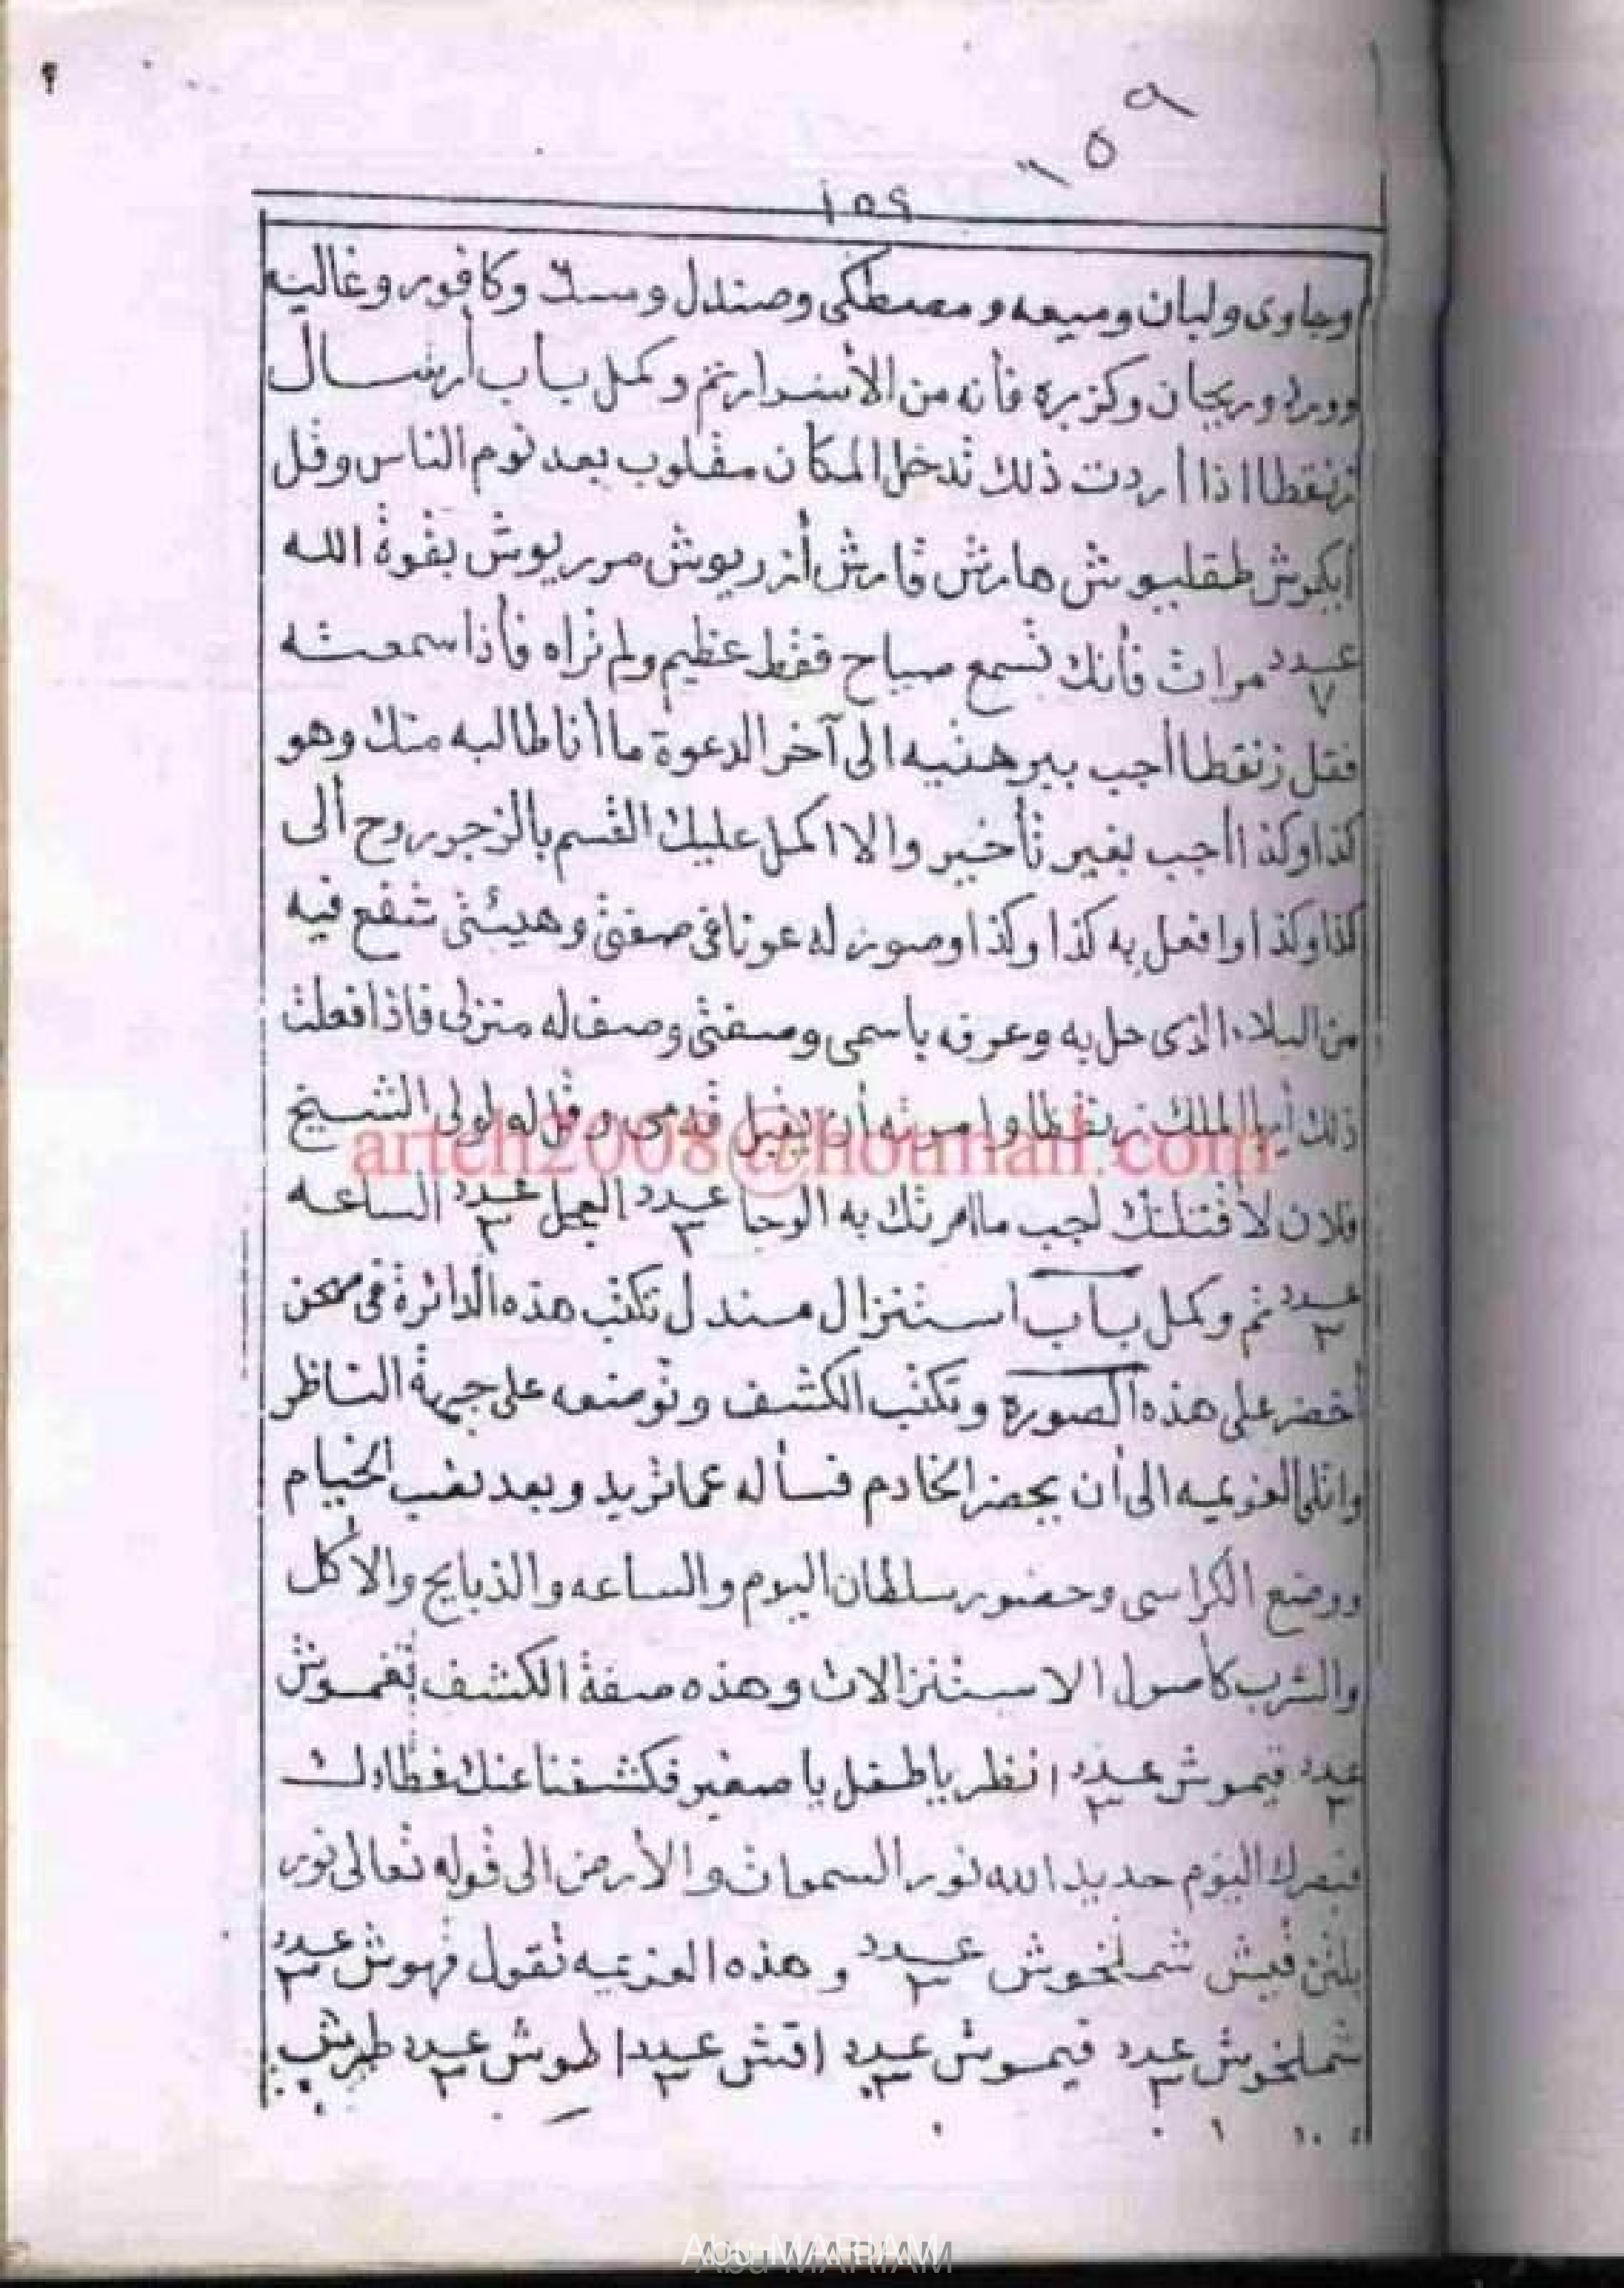 ؟
١٥٩
١٥٩
وجاوى ولبان وميعه ومصطكى وصندل ومسك وكافور وغاليه
وورد وريحان وكزبره فأنه من الأسرار تم وكمل باب أرسال
زنقطا اذا أردت ذلك تدخل المكان مقلوب بعد نوم الناس وقل
ابكموش طقليوش هارش قارش أزريوش مرريوش بقوة الله
عدد ٧ مرات فأنك تسمع صياح فقط عظيم ولم تراه فأذا سمعته
فقل زنقطا أجب ببرهتيه الى آخر الدعوة ما أنا طالبه منك وهو
كذا وكذا أجب بغير تأخير والا اكمل عليك القسم بالزجر روح ألى
كذا وكذا وافعل به كذا وكذا وصور له عونا فى صفتى وهيئتى شفع فيه
من البلاء الذى حل به وعرفه باسمى وصفتى وصف له منزلى فاذا فعلت
ذلك أيها الملك زنقطا وامرته أن يقبل قدمى وقل له لولى الشيخ
فلان لأقتلنك أجب ما امرتك به الوحا عدد ٣ العجل عدد ٣ الساعه
عدد ٣ تم وكمل باب استنزال مندل تكتب هذه الدائرة فى صحن
أخضر على هذه الصورة وتكتب الكشف وتوضعه على جبهة الناظر
واتلى العزيمه الى أن يحضر الخادم فسأله عما تريد وبعد نصب الخيام
ووضع الكراسى وحضور سلطان اليوم والساعه والذبايح والاكل
والشرب كأصول الاستنزالات وهذه صفة الكشف بغموش
عدد ٣ قيموش عدد ٣ انظر ياطفل يا صغير فكشفنا عنك غطاءك
فبصرك اليوم حديد الله نور السموات والأرض الى قوله تعالى نور
شملخوش عدد ٣ وهذه العزيمه تقول فهوش عدد ٣
شملخوش عدد ٣ قيموش عدد ٣ اقش عدد ٣ طوش عدد ٣ طرش
arteh2008@hotmail.com
Abu MARIAM